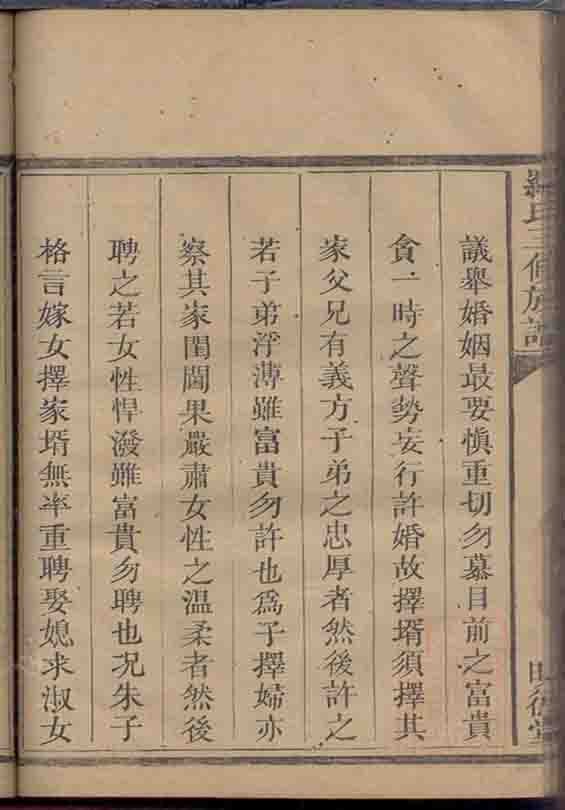 氏三修族譜
議舉婚姻最要慎重切勿慕目前之富貴
貪一時之聲勢妄行許婚故擇壻須擇其
家父兄有義方子弟之忠厚者然後許之
若子弟浮薄雖富貴勿許也為子擇婦亦
察其家閨閫果嚴肅女性之温柔者然後
聘之若女性悍潑雖富貴勿聘也况朱子
格言嫁女擇家壻無率重聘娶媳求淑女